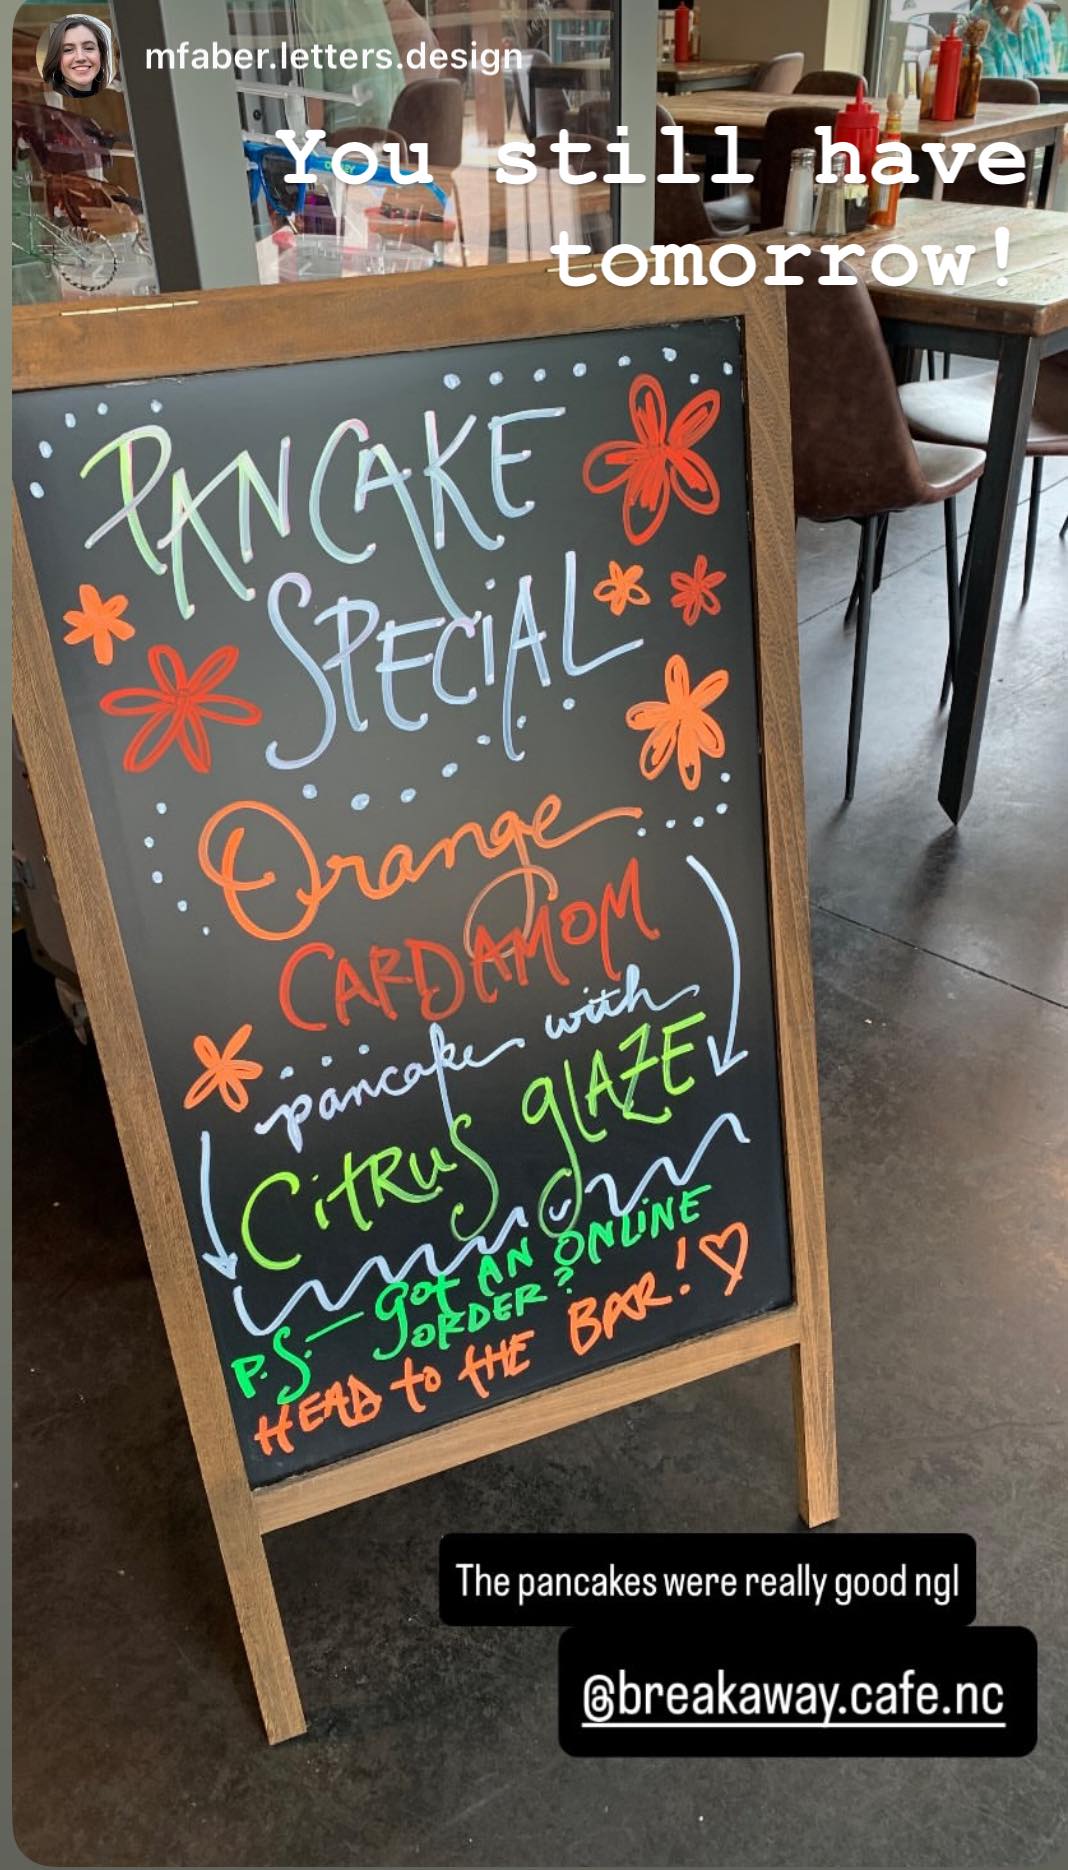 mfaber.letters.design
You still have
tomorrow!
PANCAKE
SPECIAL
Orange
CARDAMOM
pancake with
CITRUS GLAZE
P.S.— got AN ONLINE
ORDER?
HEAD to tHE BAR! ♡
The pancakes were really good ngl
@breakaway.cafe.nc